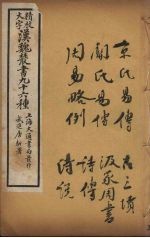 精校
大字
漢魏叢書九十六種
上海大通書局發行
武進唐駝署
京氏易傳
關氏易傳
周易略例
古三墳
汲冢周書
詩傳
詩說